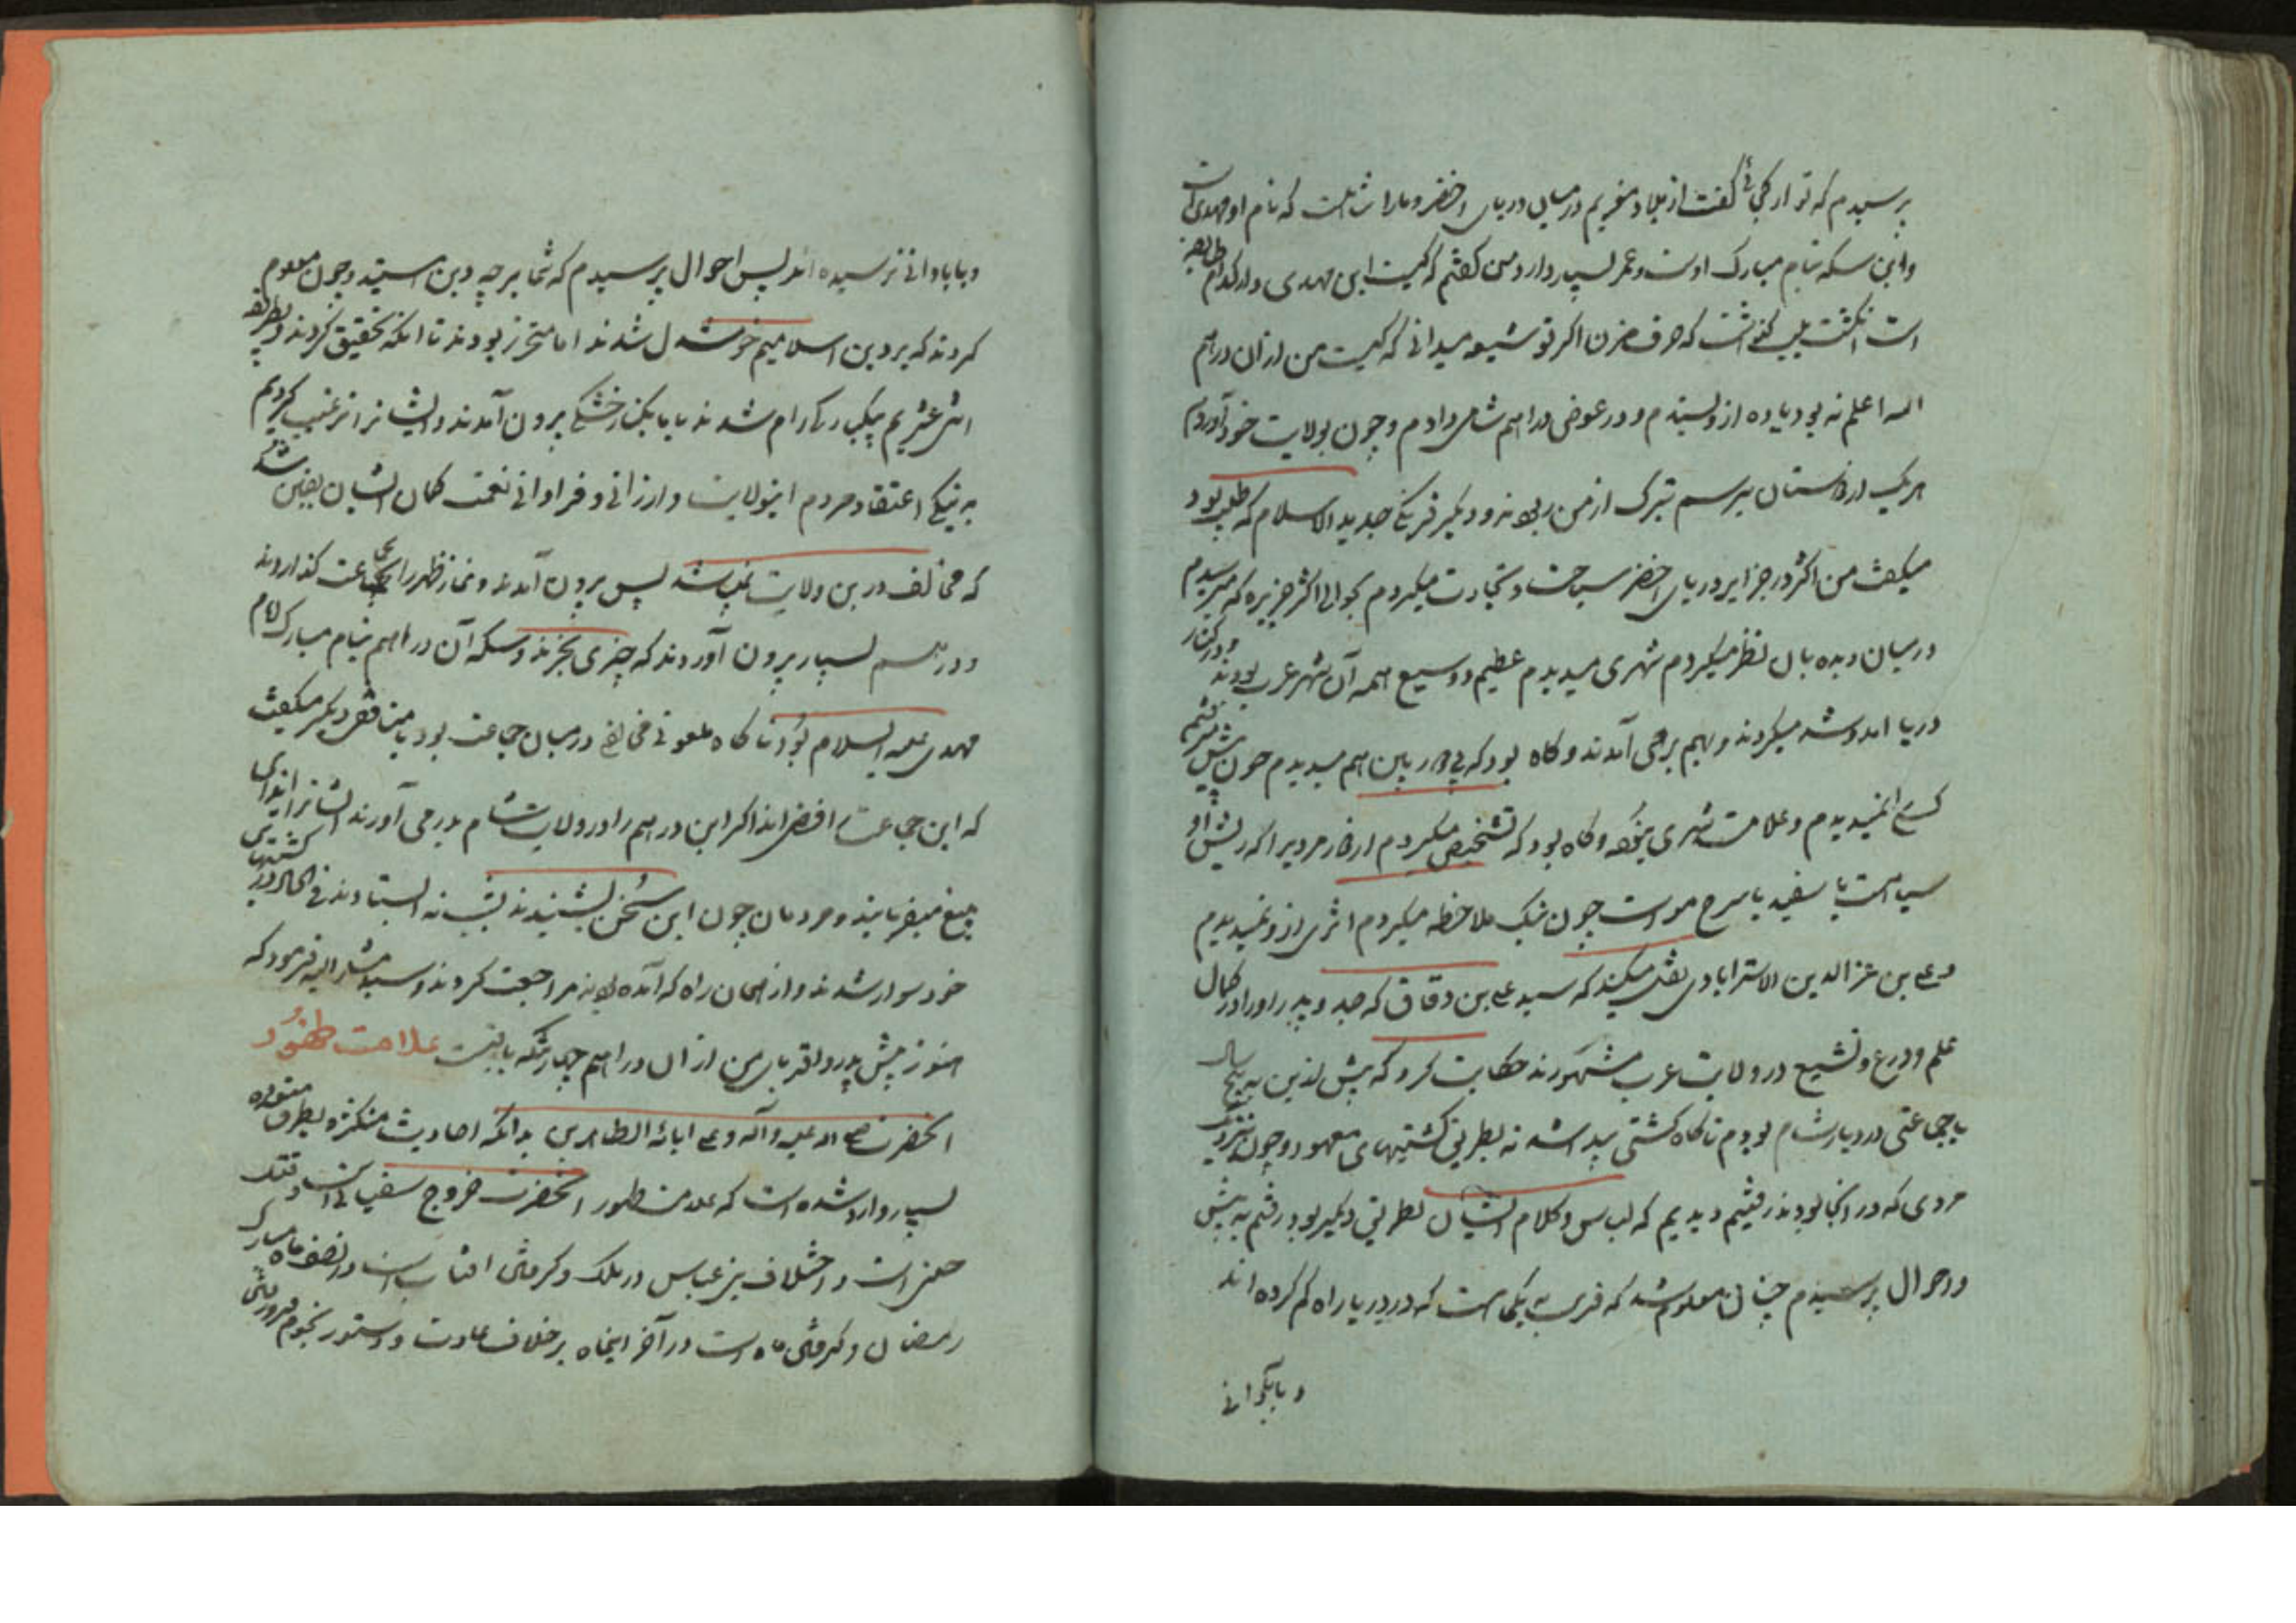 پرسیدم که تو از کجائی گفت از بلاد مغربم در میان دریای اخضر و ما را شاهیست که نام او مهدی است
و این سکه بنام مبارک اوست و عمر بسیار دارد من گفتم که کیست این مهدی و از کدام طایفه
است انگشت بلب گذاشت که حرف مزن اگر تو شیعه میدانی که کیست من از آن دراهم
الله اعلم نه بود یا ده ازو ستدم و در عوض دراهم شامی دادم و چون بولایت خود آوردم
هر یک از دوستان برسم تبرک از من ربودند و دیگر فرنگی جدید الاسلام که طلب بود
میگفت من اکثر در جزایر دریای اخضر سیاحت و تجارت میکردم بحوالی اکثر جزیره که میرسیدم
در میان دیده بان نظر میکردم شهری میدیدم عظیم و وسیع همه آن شهر عرب بودند و در کنار
دریا آمد و شد میکردند و بهم برمی آمدند و گاه بود که بی دوربین هم میدیدم چون پیش میرفتم
کسی را نمیدیدم و علامت شهری نبود و گاه بود که تشخیص میکردم از دور مردیرا که ریش او
سیاهست یا سفید یا سرخ موست چون نیک ملاحظه میکردم اثری ازو نمیدیدم
و علی بن عزالدین الاسترابادی نقل میکند که سید علی بن دقاق که جد و پدر او را در کمال
علم و ورع و تشیع در ولایت عرب مشهورند حکایت کرد که پیش ازین به پنج سال
با جماعتی در دیار شام بودم ناگاه کشتی پیدا شد نه بطریق کشتیهای معهود و چون نزدیک
مردی که در آنجا بودند رفتیم دیدیم که لباس و کلام ایشان بطریق دیگر بود رفتم به پیش
و احوال پرسیدم چنان معلوم شد که قریب به یکماهست که در دریا راه گم کرده اند
و بآبادانی
و بآبادانی نرسیده اند پس احوال پرسیدم که شما بر چه دین هستید و چون معلوم
کردند که بر دین اسلامیم خوشدل شدند اما متحرز بودند تا آنکه تحقیق کردند و بطریقه
اثنی عشریم بیکبارگی رام شدند با ما یکبار خشکی برون آمدند و ایشانرا ترغیب کردیم
به نیکی اعتقاد مردم اینولایت و ارزانی و فراوانی نعمت گمان ایشان یقین شد
که مخالف درین ولایت نمیباشد پس برون آمدند و نماز ظهر را بجماعت گذاردند
و درهم بسیار برون آوردند که چیزی بخرند و سکه آن دراهم بنام مبارک امام
مهدی علیه السلام بود ناگاه ملعونی مخالف در میان جماعت بود با منافقی دیگر میگفت
که این جماعت رافضی اند اگر این دراهم را در ولایت شام درمی آورند ایشانرا ایذای
بلیغ میفرمایند و مردمان چون این سخن بشنیدند نه ایستادند فی الحال در کشتیهای
خود سوار شدند و از همان راه که آمده بودند مراجعت کردند و سید مشار الیه فرمود که
هنوز پیش پدر و اقربای من از آن دراهم چهار تنگه باقیست علامت ظهور
آنحضرت صلی الله علیه و آله و علی ابائه الطاهرین بدانکه احادیث متکثره بطرق متعدده
بسیار وارد شده است که علامت ظهور آنحضرت خروج سفیانی است و قتل
حسنی است و اختلاف بنی عباس در ملک و گرفتن آفتاب است در نصف ماه مبارک
رمضان و گرفتن ماه است در آخر اینماه بر خلاف عادت و دستور نجوم و فرورفتن